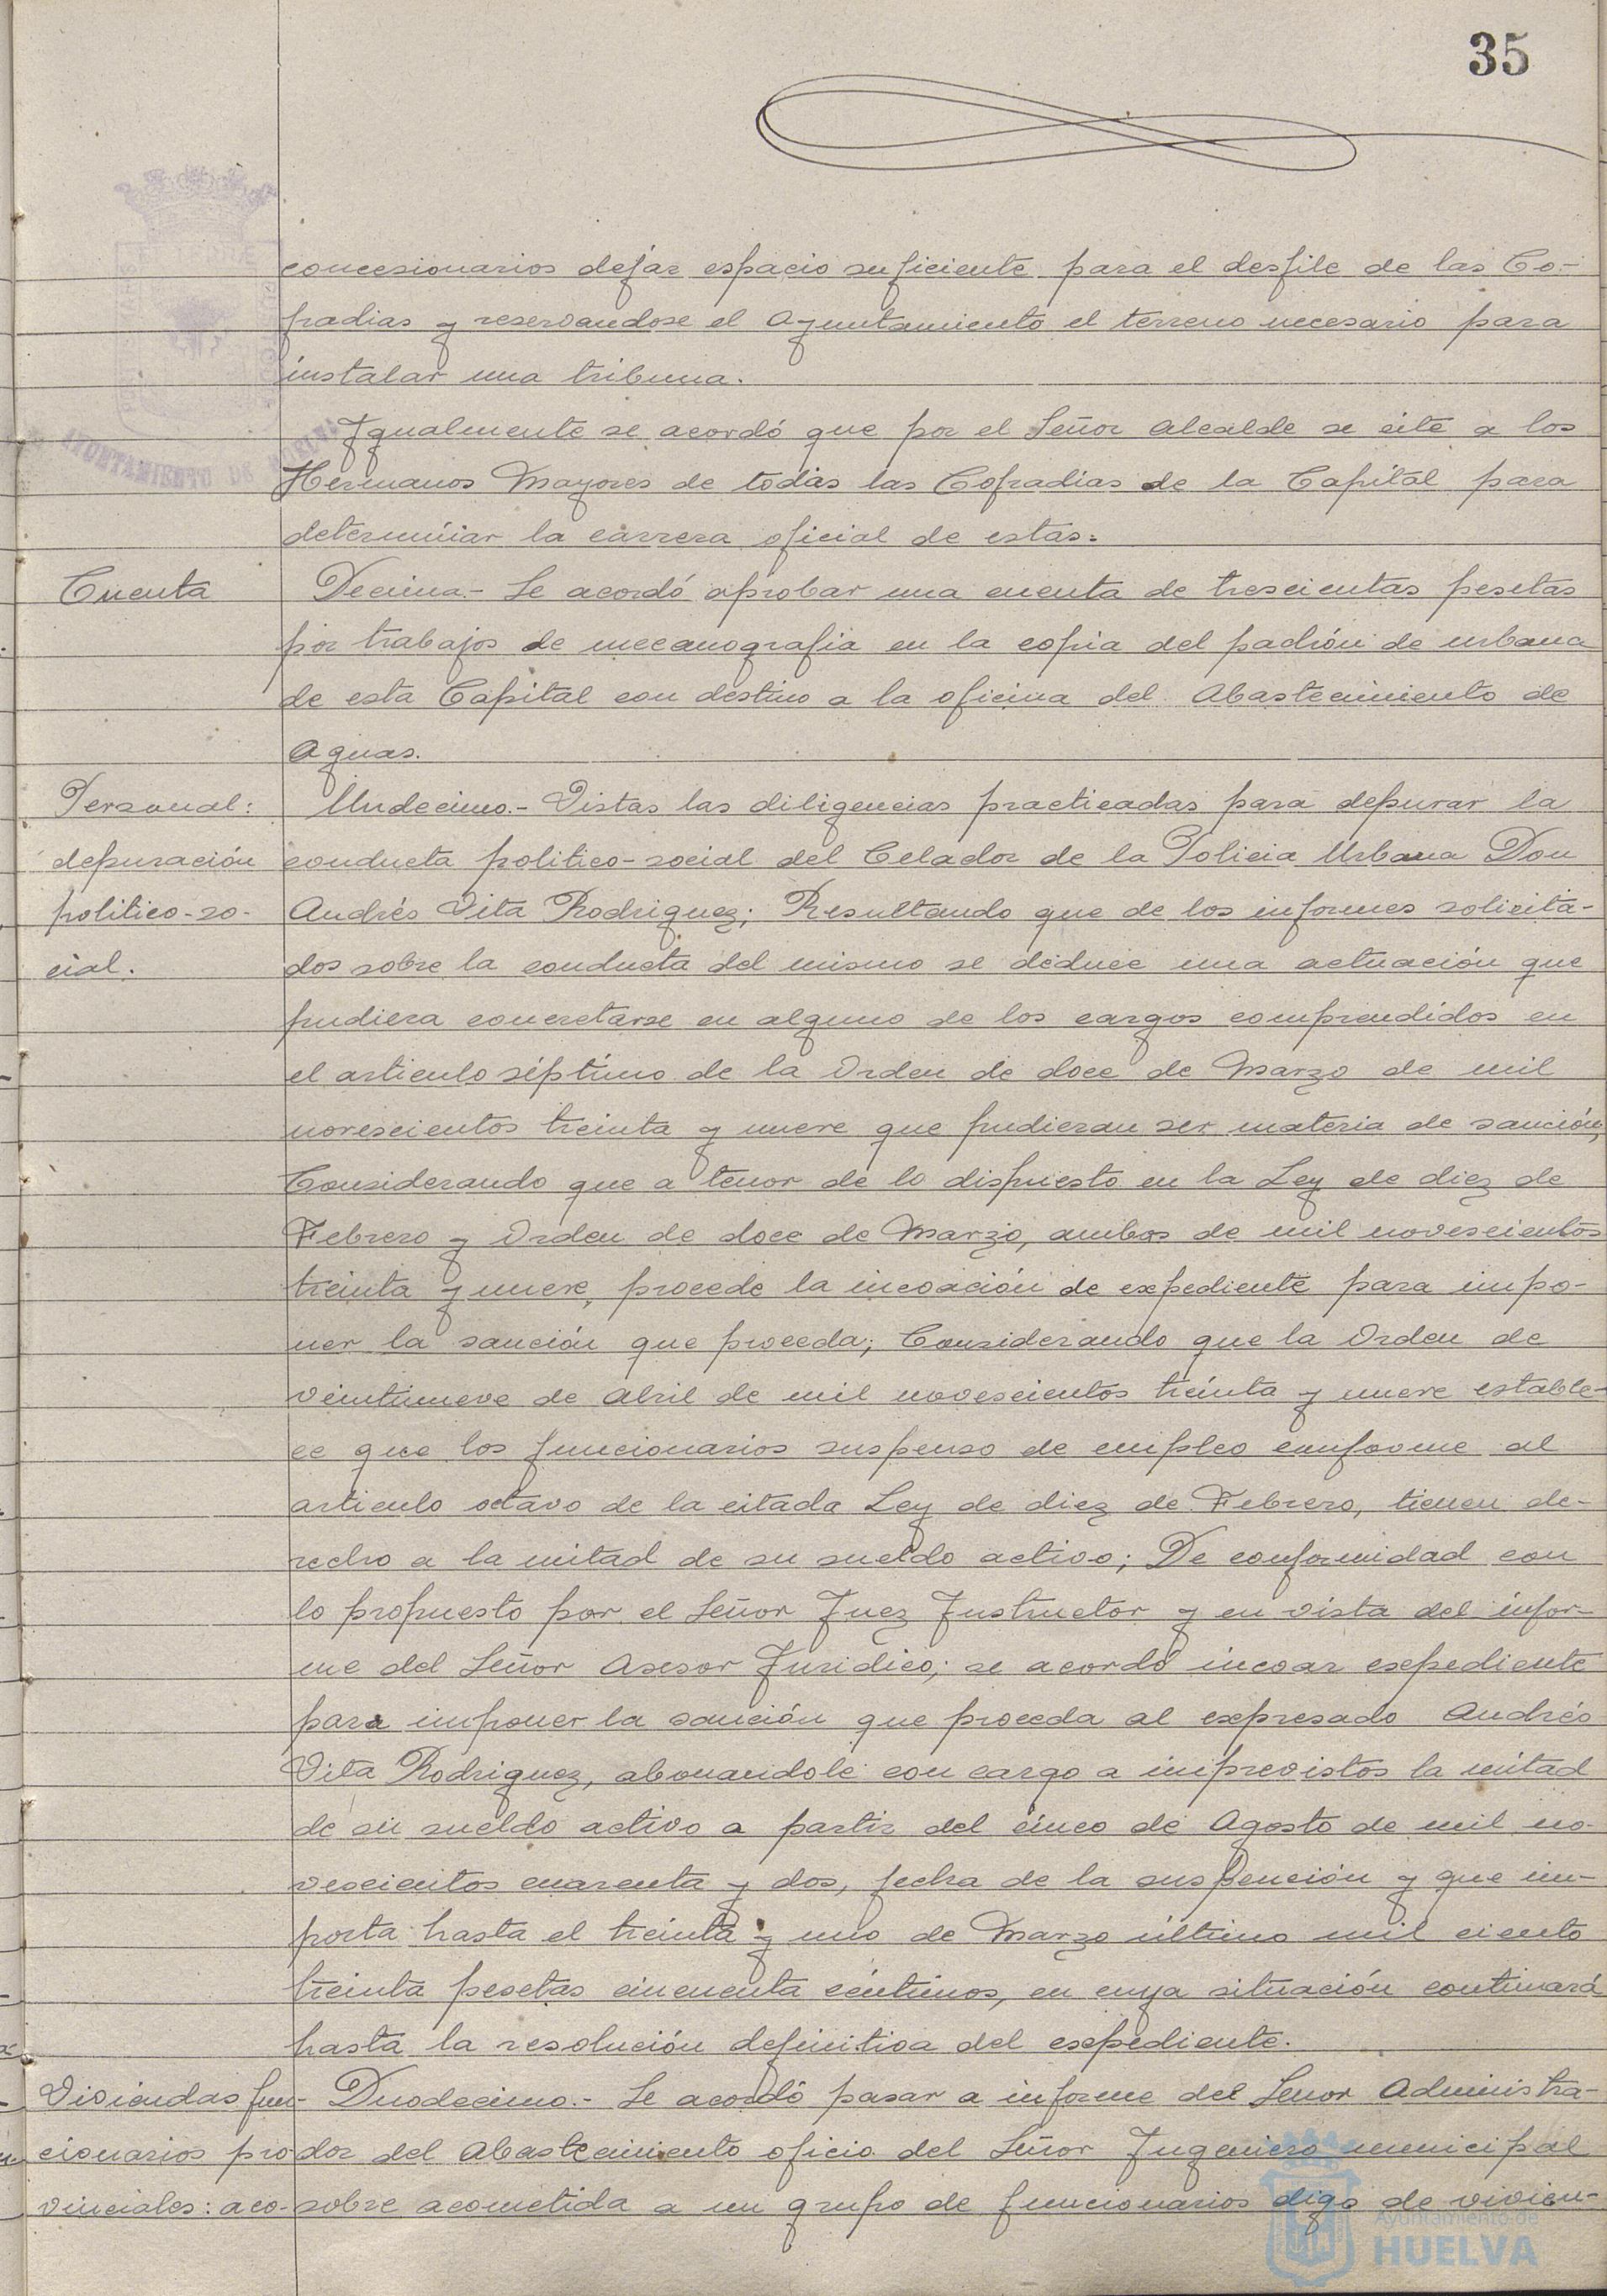 35
concesionarios dejár espacio suficiente para el desfile de las Co-
fradias y reservandose el Ayuntamiento el terreno necesario para
instalar una tribuna.
Igualmente se acordó que por el Señor Alcalde se cite a los
Hermanos Mayores de todas las Cofradias de la Capital para
determinar la carrera oficial de estas.
Cuenta
Decima.- Se acordó aprobar una cuenta de trescientas pesetas
por trabajos de mecanografia en la copia del padrón de urbana
de esta Capital con destino a la oficina del Abastecimiento de
Aguas.
Personal:
depuración
politico-so-
cial.
Undecimo.- Vistas las diligencias practicadas para depurar la
conducta politico-social del Celador de la Policia Urbana Don
Andrés Vita Rodriguez; Resultando que de los informes solicita-
dos sobre la conducta del mismo se deduce una actuación que
pudiera concretarse en alguno de los cargos comprendidos en
el articulo séptimo de la Orden de doce de Marzo de mil
novescientos treinta y nueve que pudieran ser materia de sanción,
Considerando que a tenor de lo dispuesto en la Ley de diez de
Febrero y Orden de doce de Marzo, ambos de mil novescientos
treinta y nueve, procede la incoación de expediente para impo-
ner la sanción que proceda; Considerando que la Orden de
veintinueve de Abril de mil novescientos treinta y nueve estable-
ce que los funcionarios suspenso de empleo conforme al
articulo octavo de la citada Ley de diez de Febrero, tienen de-
recho a la mitad de su sueldo activo; De conformidad con
lo propuesto por el Señor Juez Instructor y en vista del infor-
me del Señor Asesor Juridico; se acordó incoar expediente
para imponer la sanción que proceda al expresado Andrés
Vita Rodriguez, abonandole con cargo a imprevistos la mitad
de su sueldo activo a partir del cinco de Agosto de mil no-
vescientos cuarenta y dos, fecha de la suspención y que im-
porta hasta el treinta y uno de Marzo último mil ciento
treinta pesetas cincuenta céntimos, en cuya situación continuará
hasta la resolución definitiva del expediente.
Viviendas fun-
cionarios pro-
vinciales: aco-
Duodecimo.- Se acordó pasar a informe del Señor Administra-
dor del Abastecimiento oficio del Señor Ingeniero municipal
sobre acometida a un grupo de funcionarios digo de vivien-
AYUNTAMIENTO DE HUELVA
Ayuntamiento de
HUELVA